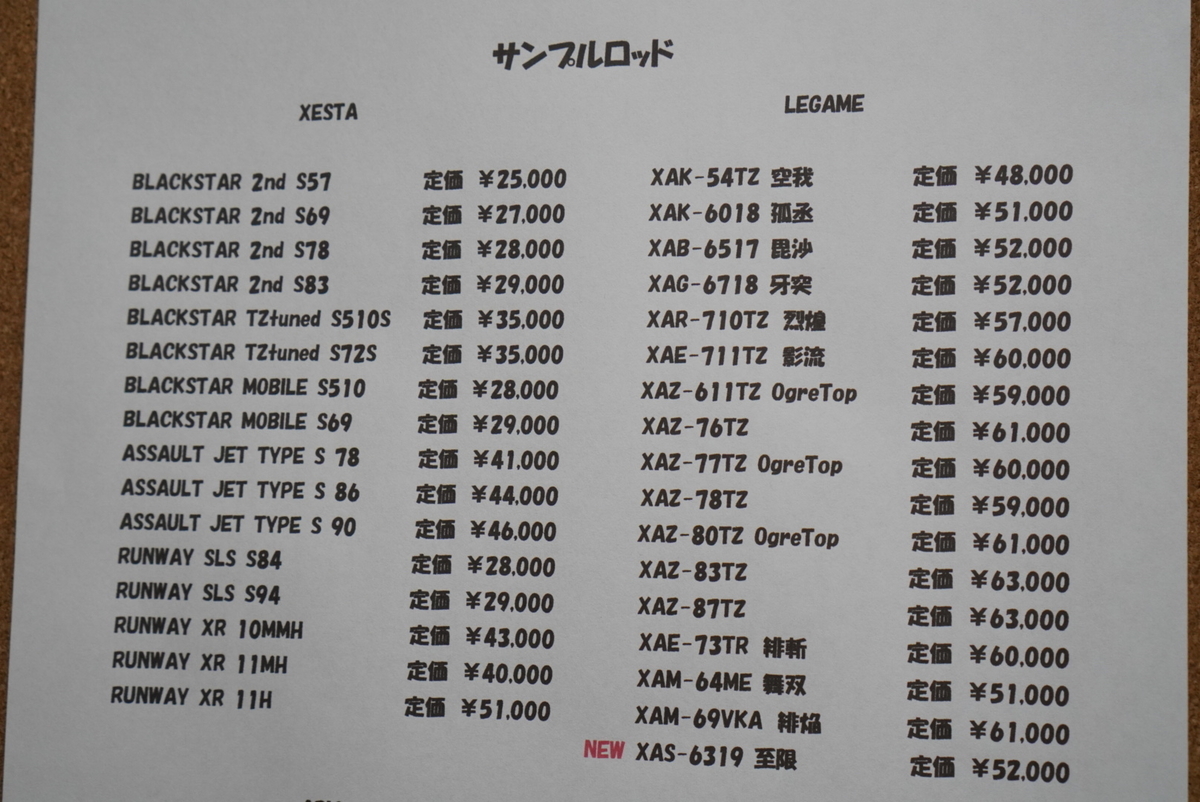 サンプルロッド
XESTA
BLACKSTAR 2nd S57 定価 ¥25,000
BLACKSTAR 2nd S69 定価 ¥27,000
BLACKSTAR 2nd S78 定価 ¥28,000
BLACKSTAR 2nd S83 定価 ¥29,000
BLACKSTAR TZtuned S510S 定価 ¥35,000
BLACKSTAR TZtuned S72S 定価 ¥35,000
BLACKSTAR MOBILE S510 定価 ¥28,000
BLACKSTAR MOBILE S69 定価 ¥29,000
ASSAULT JET TYPE S 78 定価 ¥41,000
ASSAULT JET TYPE S 86 定価 ¥44,000
ASSAULT JET TYPE S 90 定価 ¥46,000
RUNWAY SLS S84 定価 ¥28,000
RUNWAY SLS S94 定価 ¥29,000
RUNWAY XR 10MMH 定価 ¥43,000
RUNWAY XR 11MH 定価 ¥40,000
RUNWAY XR 11H 定価 ¥51,000
LEGAME
XAK-54TZ 空我 定価 ¥48,000
XAK-6018 孤丞 定価 ¥51,000
XAB-6517 毘沙 定価 ¥52,000
XAG-6718 牙突 定価 ¥52,000
XAR-710TZ 烈煌 定価 ¥57,000
XAE-711TZ 影流 定価 ¥60,000
XAZ-611TZ OgreTop 定価 ¥59,000
XAZ-76TZ 定価 ¥61,000
XAZ-77TZ OgreTop 定価 ¥60,000
XAZ-78TZ 定価 ¥59,000
XAZ-80TZ OgreTop 定価 ¥61,000
XAZ-83TZ 定価 ¥63,000
XAZ-87TZ 定価 ¥63,000
XAE-73TR 緋斬 定価 ¥60,000
XAM-64ME 舞双 定価 ¥51,000
XAM-69VKA 緋焔 定価 ¥61,000
NEW XAS-6319 至限 定価 ¥52,000